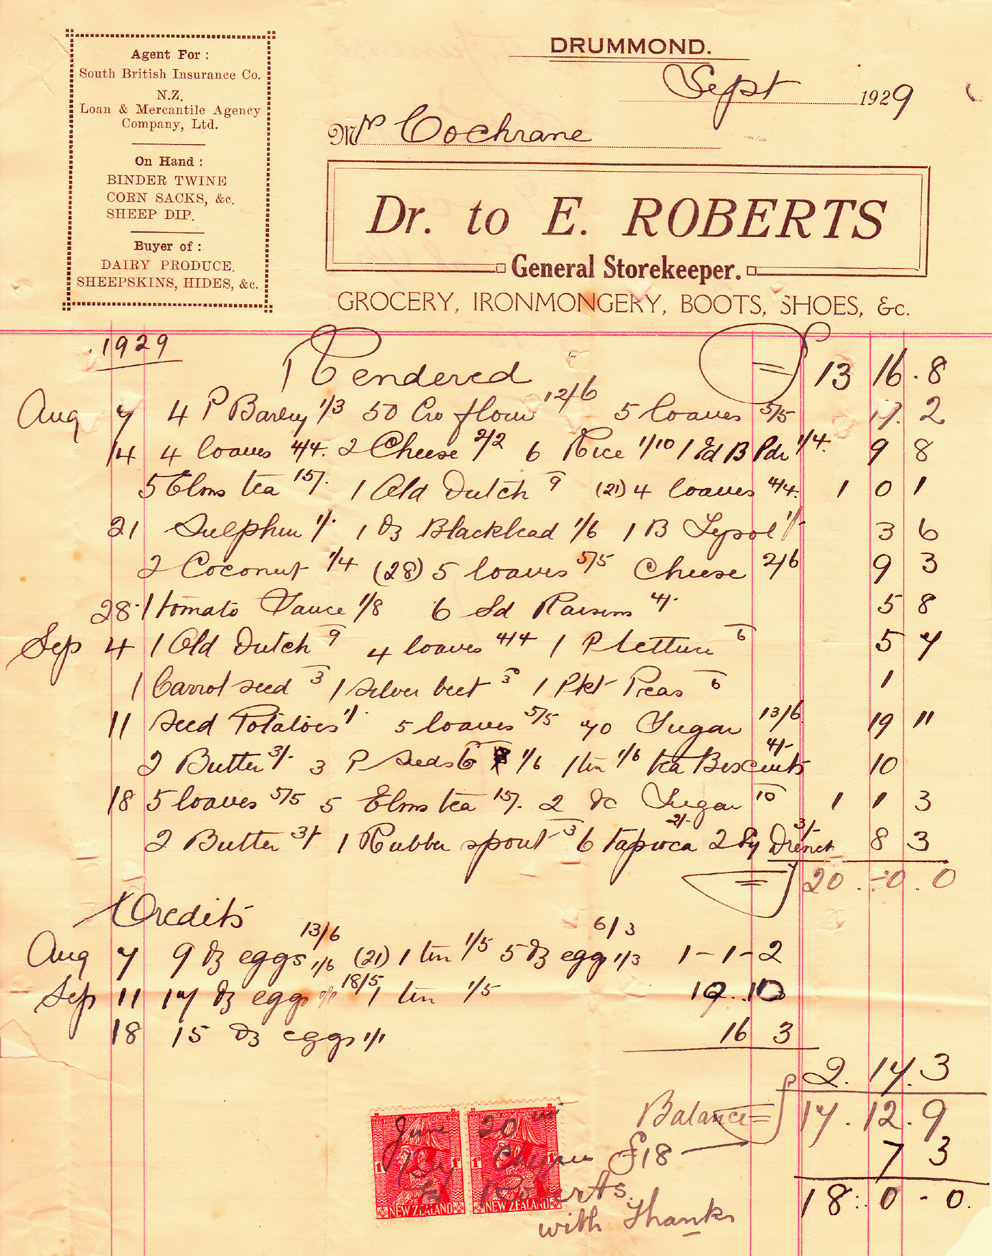 Agent For :
South British Insurance Co.
N.Z.
Loan & Mercantile Agency
Company, Ltd.
On Hand :
BINDER TWINE
CORN SACKS, &c.
SHEEP DIP.
Buyer of :
DAIRY PRODUCE.
SHEEPSKINS, HIDES, &c.
DRUMMOND.
Sept 1929
Mr Cochrane
Dr. to E. ROBERTS
General Storekeeper.
GROCERY, IRONMONGERY, BOOTS, SHOES, &c.
1929
Rendered 13 16 . 8
Aug 7 4 P Barley 1/3 50 Cro flour 12/6 5 loaves 5/5 17. 2
14 4 loaves 4/4. 2 Cheese 2/2 6 Rice 1/10 1 Ed B Pdr 1/4. 9 8
5 Elms tea 15/. 1 Old Dutch 9 (21) 4 loaves 4/4. 1 0 1
21 Sulphur 1/. 1 dz Blacklead 1/6 1 B Lysol 1/- 3 6
2 Coconut 1/4 (28) 5 loaves 5/5 Cheese 2/6 9 3
28. 1 tomato Sauce 1/8 6 Sd Raisins 4/. 5 8
Sep 4 1 Old Dutch 9 4 loaves 4/4 1 P lettuce 6 5 7
1 Carrot seed 3 1 Silver beet 3 1 Pkt Peas 6 1
11 Seed Potatoes 1/. 5 loaves 5/5 70 Sugar 13/6 19 11
2 Butter 3/. 3 P Seeds 6 1/6 1 tin 1/6 tea Biscuits 4/- 10
18 5 loaves 5/5 5 Elms tea 15/. 2 dc Sugar 10 1 1 3
2 Butter 3/ 1 Rubber spout 3 6 Tapioca 2/- 2 Drench 3/- 8 3
20 . 0 . 0
Credits
Aug 7 9 dz eggs 1/6 13/6 (21) 1 tin 1/5 5 dz egg 1/3 6/3 1-1-2
Sep 11 17 dz eggs 18/5 1 tin 1/5 19 . 10
18 15 dz eggs 1/1 16 3
2. 17. 3
Balance = 17. 12. 9
£18 7 3
18 . 0 - 0.
June 20
1 1
NEW ZEALAND NEW ZEALAND
Roberts.
with Thanks